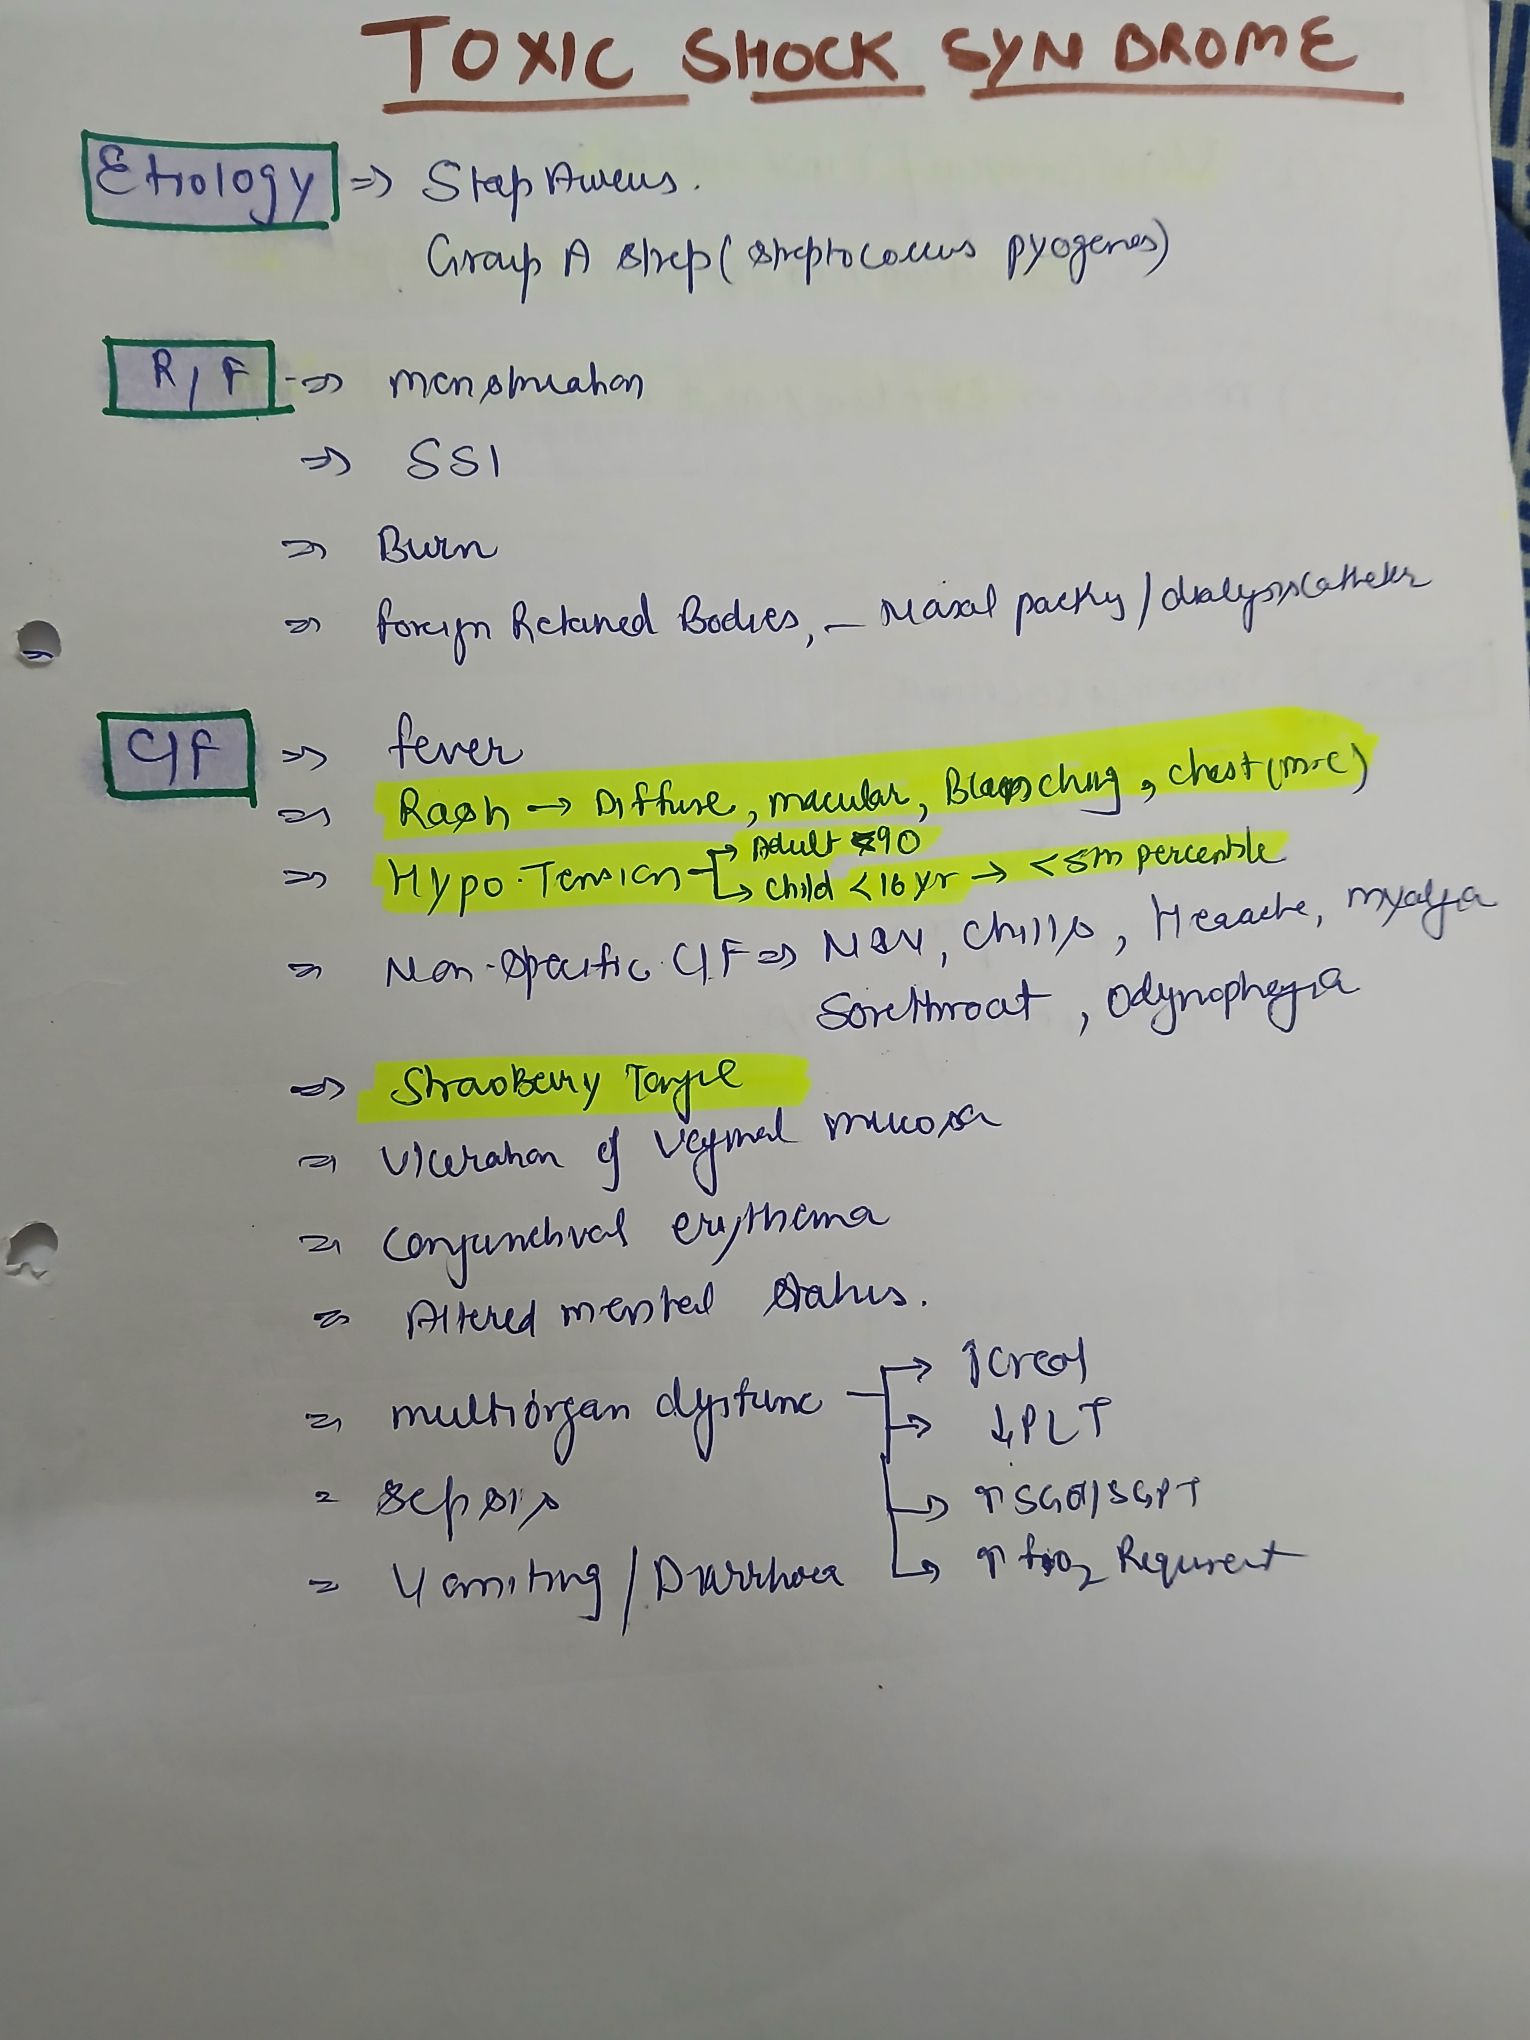 TOXIC SHOCK SYNDROME
Etiology => Stap Aureus.
Group A strep (streptococcus pyogenes)
R/F => menstruation
=> SSI
=> Burn
=> foreign Retained Bodies, - Nasal packing / dialysis catheter
C/F => fever
=> Rash → Diffuse, macular, Blanching, chest (m.c)
=> Hypo.Tension → Adult <90
→ child <16 yr → <5th percentile
=> Non-specific C/F => N&V, chills, Headache, myalgia
Sorethroat, odynophagia
=> StrawBerry Tongue
=> Ulceration of vaginal mucosa
=> conjunctival erythema
=> Altered mental status.
=> multiorgan dysfunc → ↑creat
→ ↓PLT
= sepsis → ↑SGOT/SGPT
= Vomiting / Diarrhoea → ↑ fio2 Requirement